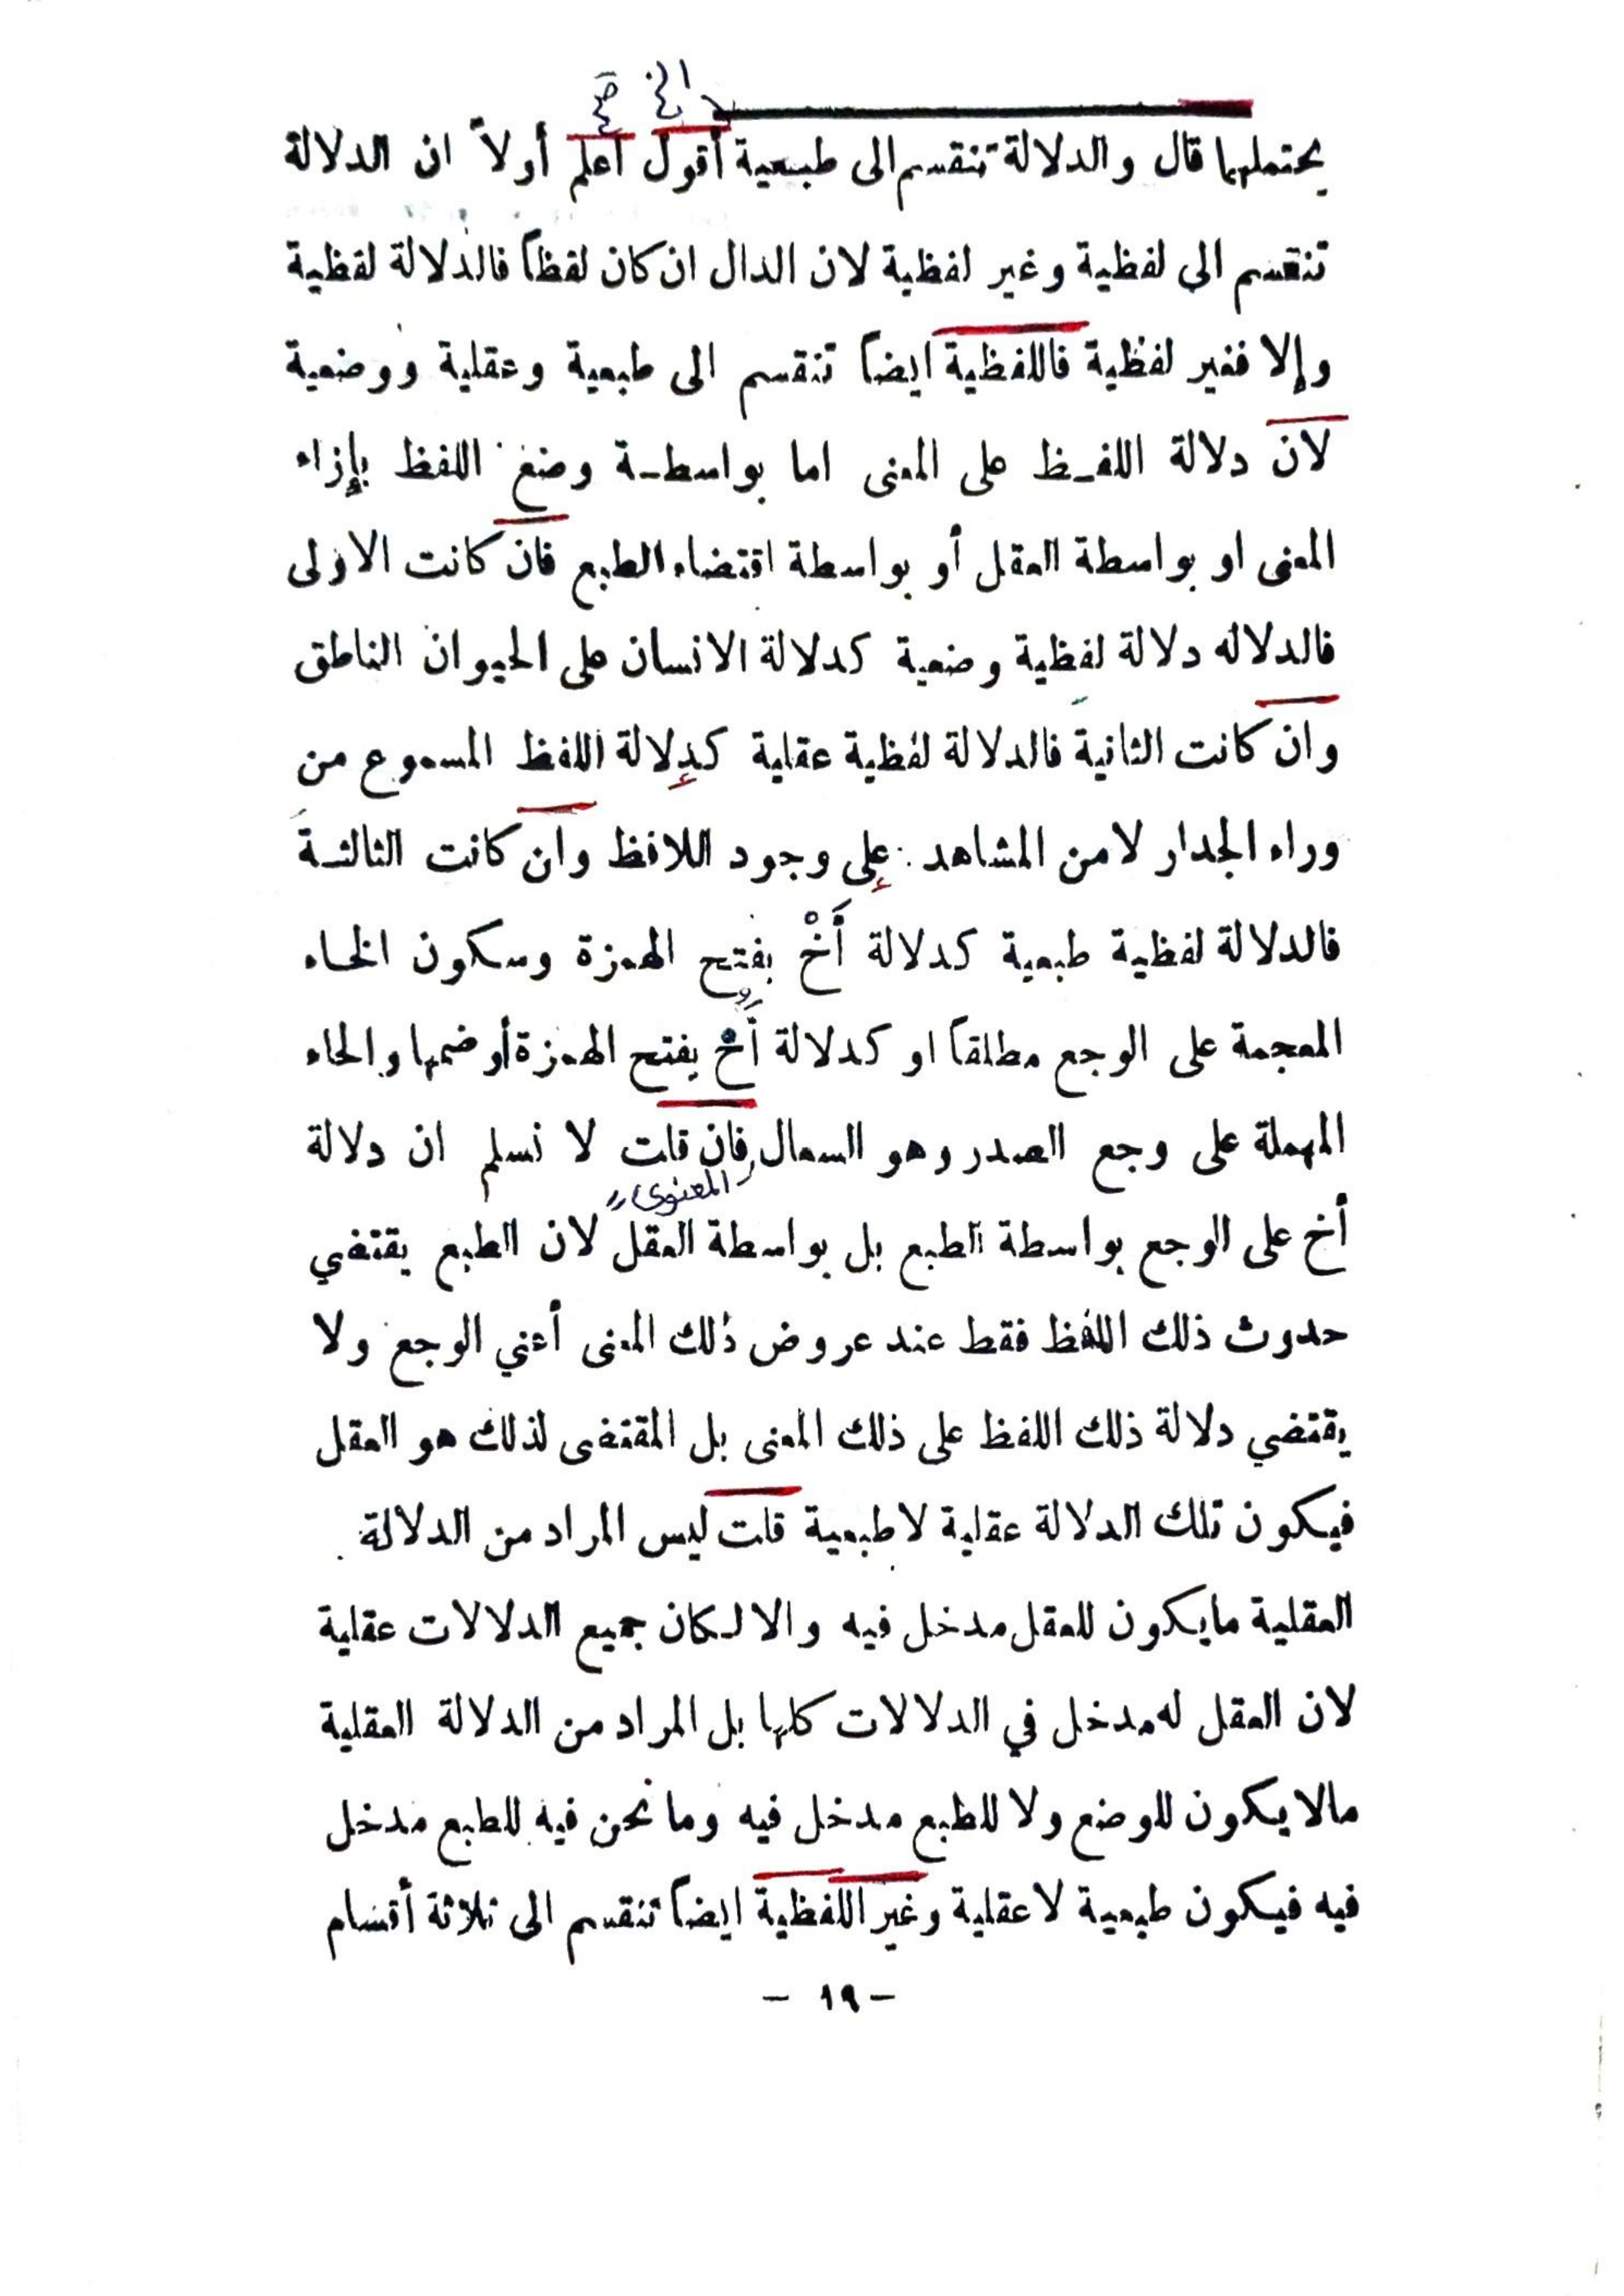 الخ صح
يحتملهما قال والدلالة تنقسم الى طبيعية أقول اعلم أولاً ان الدلالة
تنقسم الى لفظية وغير لفظية لان الدال ان كان لفظاً فالدلالة لفظية
وإلا فغير لفظية فاللفظية ايضاً تنقسم الى طبعية وعقلية ووضعية
لان دلالة اللفـظ على المعنى اما بواسطـة وضع اللفظ بإزاء
المعنى او بواسطة العقل أو بواسطة اقتضاء الطبع فان كانت الاولى
فالدلاله دلالة لفظية وضعية كدلالة الانسان على الحيوان الناطق
وان كانت الثانية فالدلالة لفظية عقلية كدلالة اللفظ المسموع من
وراء الجدار لا من المشاهد : على وجود اللافظ وان كانت الثالثـة
فالدلالة لفظية طبعية كدلالة أَخْ بفتح الهمزة وسكون الخاء
المعجمة على الوجع مطلقاً او كدلالة أح بفتح الهمزة أو ضمها والحاء
المهملة على وجع الصدر وهو السعال فان قلت لا نسلم ان دلالة
المعنوى
أخ على الوجع بواسطة الطبع بل بواسطة العقل لان الطبع يقتضي
حدوث ذلك اللفظ فقط عند عروض ذلك المعنى أعني الوجع ولا
يقتضي دلالة ذلك اللفظ على ذلك المعنى بل المقتضى لذلك هو العقل
فيكون تلك الدلالة عقلية لا طبعية قلت ليس المراد من الدلالة
العقلية مايكون للعقل مدخل فيه والا لـكان جميع الدلالات عقلية
لان العقل له مدخل في الدلالات كلها بل المراد من الدلالة العقلية
مالا يكون للوضع ولا للطبع مدخل فيه وما نحن فيه للطبع مدخل
فيه فيكون طبعية لا عقلية وغير اللفظية ايضاً تنقسم الى ثلاثة أقسام
– ١٩ –